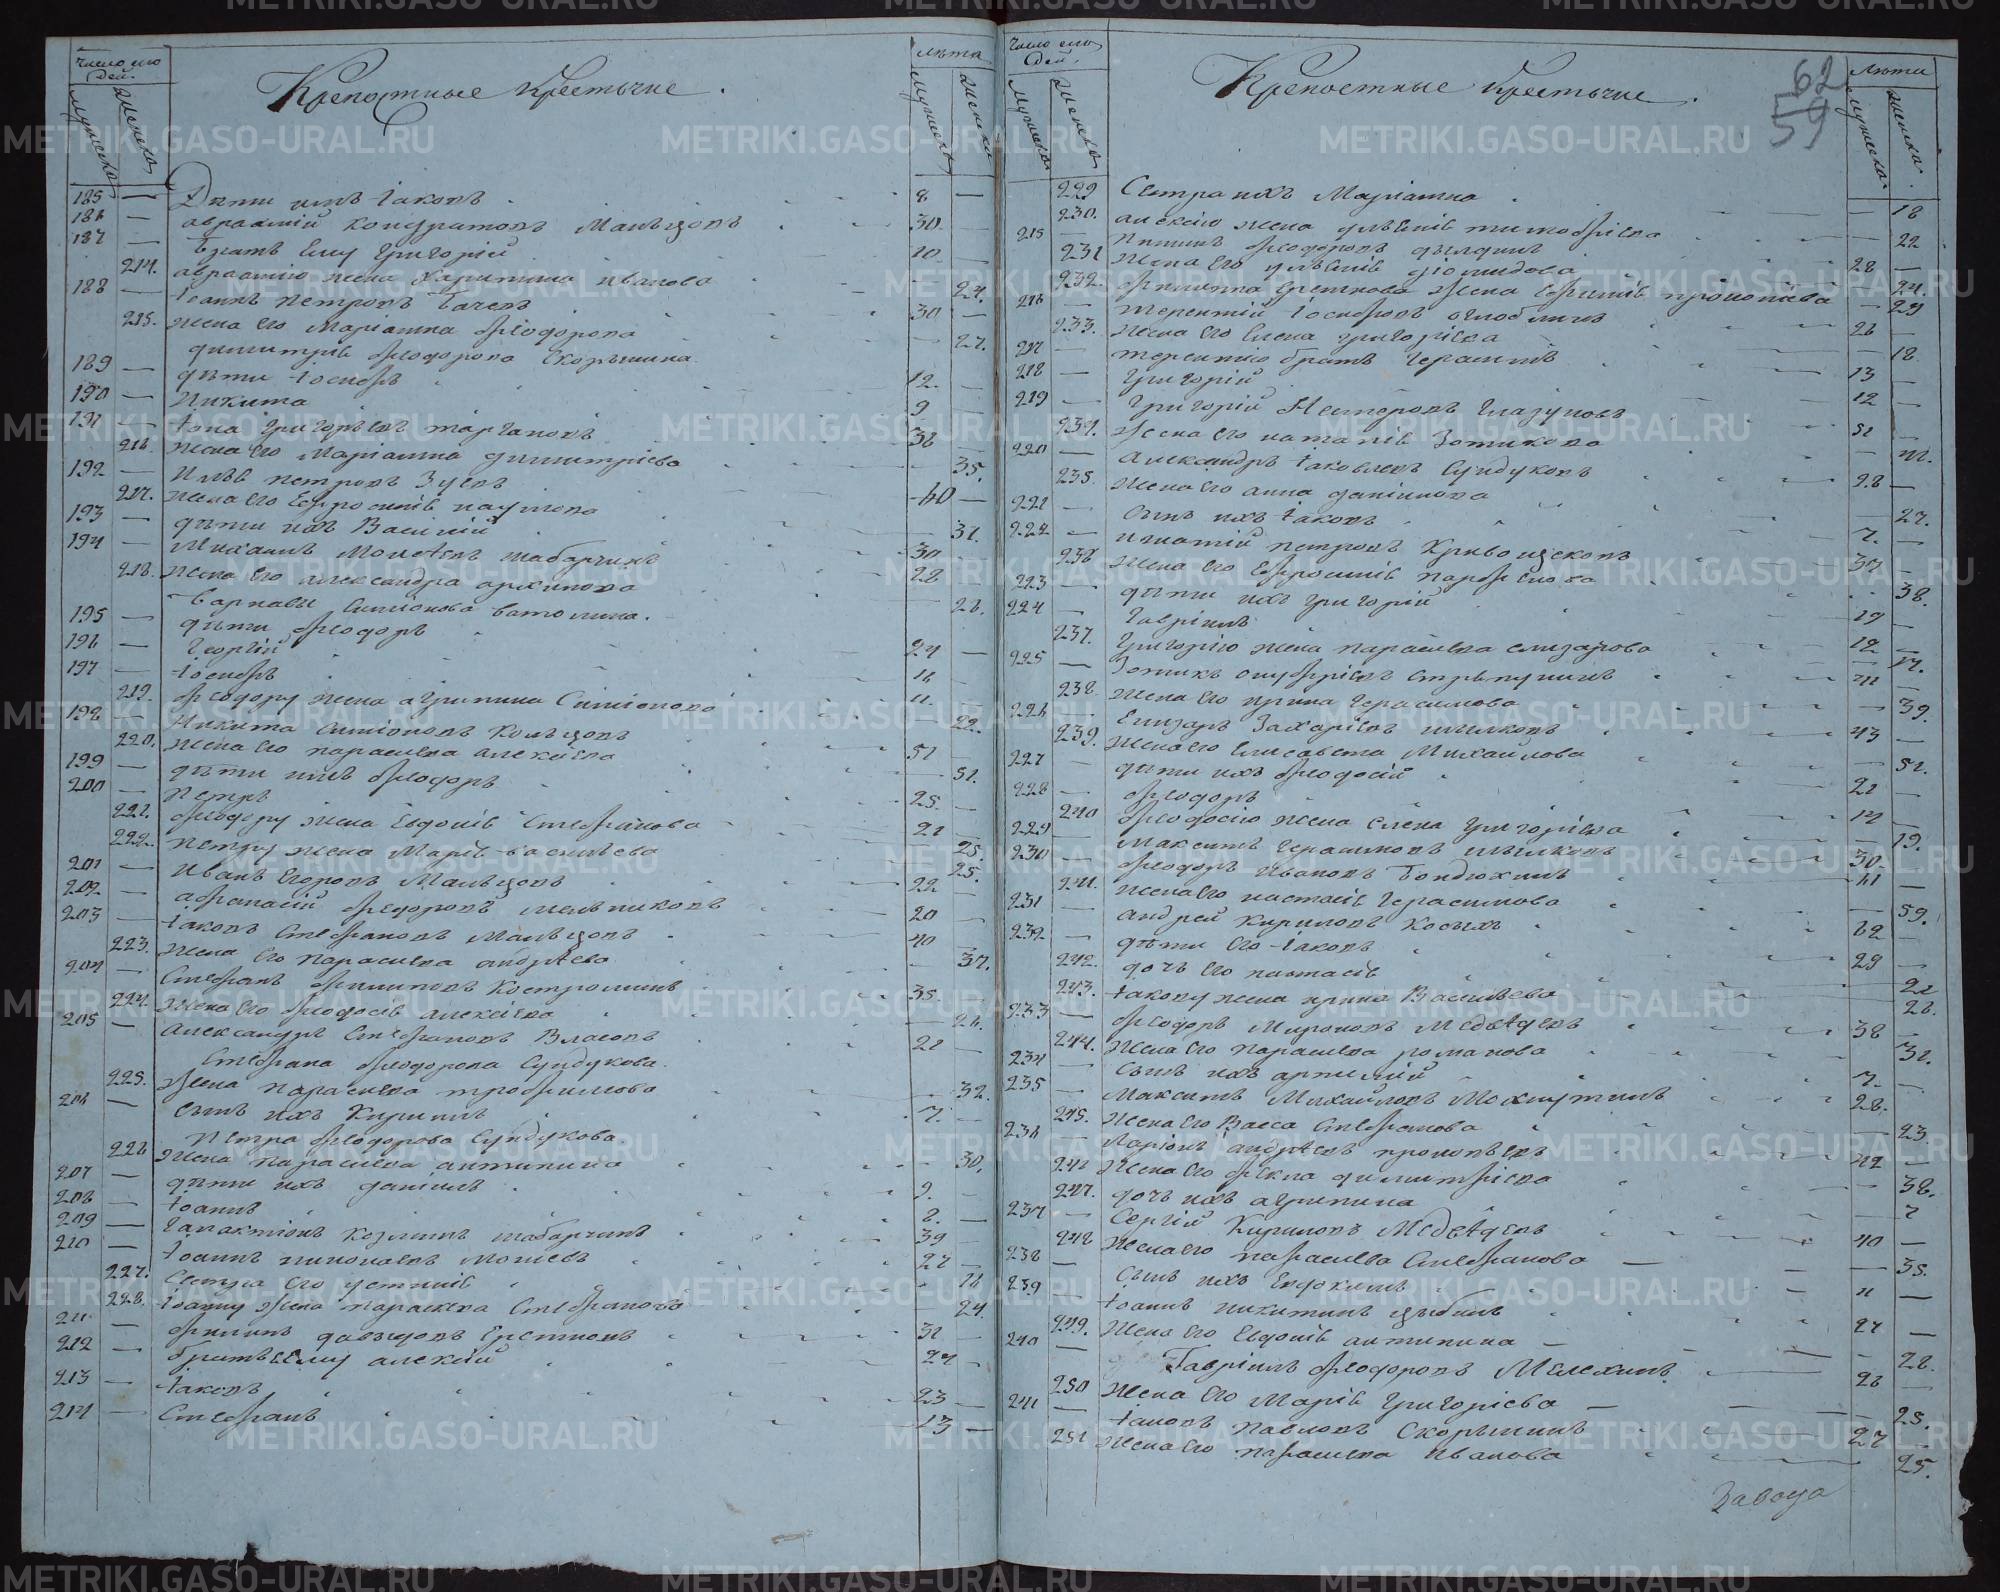 число лю
дей.
мужеска
женска
Крепостные Крестьяне.
лѣта
мужеска
женска
185 — Дѣти ихъ Іаковъ 8 —
186 — авраамій Кондратовъ Мальцовъ 30 —
187 — братъ Ему Григорій 10 —
214. авраамію жена Харитина иванова — 24.
188 — Іоаннъ петровъ 30 —
215. жена Его Маріамна Ѳеодорова — 27.
димитрія Ѳеодорова Скорынина
189 — дѣти Іосифъ 12. —
190 — Никита 9 —
191 — Іона Григорьевъ 36 —
216. жена Его Маріамна димитріева — 35.
192 — Илья петровъ Зуевъ 40 —
217. жена Его Ефросинія наумова — 31.
193 — дѣти ихъ Василій 30 —
194 — Михаилъ Шабарчинъ 28 —
218. жена Его александра архипова — 26.
Варнавы Симіонова Ватолина.
195 — дѣти Ѳеодоръ 24 —
196 — Георгій 16 —
197 — Іосифъ 11. —
219. Ѳеодору жена агрипина Симіонова — 22.
198 — Никита Симіоновъ Кольцовъ 51 —
220. жена Его параскева алексіева — 51.
199 — дѣти ихъ Ѳеодоръ 25. —
200 — Петръ 21 —
221. Ѳеодору жена Евдокія Стефанова — 25.
222. петру жена Марія васильева — 25.
201 — Иванъ Егоровъ Мальцовъ 22 —
202 — афанасій Ѳеодоровъ мельниковъ 20 —
203 — Іаковъ Стефановъ Мальцовъ 40 —
223. жена Его параскева андрѣева — 37.
204 — Стефанъ филиповъ Костроминъ 35. —
224. жена Его Ѳеодосія алексіева — 26.
205 — александръ Стефановъ Власовъ 21 —
Стефана Ѳеодорова Сундукова.
225. жена параскева трофимова — 32.
206 — сынъ ихъ Кирилъ 7. —
Петра Ѳеодорова Сундукова
226 жена параскева антипина — 30.
207 — дѣти ихъ даніилъ 9. —
208 — Іоаннъ 2. —
209 — Галактіонъ Козминъ шабарчинъ 39 —
210 — Іоаннъ 27 —
227. Сестра Его устинія — 16
228. Іоанну жена параскева Стефанова — 24.
211 — филипъ давыдовъ 31 —
212 — братъ Ему алексій 24 —
213 — Іаковъ 23 —
214 — Стефанъ 13 —
число лю
дей.
мужеска
женска
Крепостные Крестьяне.
62
59
лѣта
мужеска
женска
229 Сестра ихъ Маріамна — 18
230. алексію жена тимофіева — 22
215 — Ѳеодоровъ 28 —
231 жена Его діомидова — 24.
232. филиппа жена прокопіева — 29
216 — терентій Іосифовъ оглоблинъ 26 —
233. жена Его Елена григоріева — 18
217 — терентію братъ Герасимъ 13 —
218 — Григорій 12 —
219 — Григорій Нестеровъ Глазуновъ 51 —
234. жена Его наталія Зотикова
220 — александръ Іаковлевъ Сундуковъ 28 —
235. жена Его анна даніилова — 27.
221 — сынъ ихъ Іаковъ 7. —
222 — игнатій петровъ Кривощековъ
236 жена Его Ефросинія парфенова — 38.
223 — дѣти ихъ григорій 19 —
224 — Гавріилъ 12 —
237. Григорію жена параскева елизарова — 17.
225 — Зотикъ онуфріевъ
238. жена Его ирина Герасимова — 39.
226 — Елизаръ Захаріевъ 43 —
239. жена Его Елисавета Михаилова — 51.
227 — дѣти ихъ Ѳеодосій 21 —
228 — Ѳеодоръ 14 —
240 Ѳеодосію жена елена григоріева — 19.
229 — Максимъ Герасимовъ 30 —
230 — Ѳеодоръ ивановъ Бондюхинъ 61 —
241. жена Его настасія Герасимова — 59.
231 — андрей Кириловъ Косыхъ 62 —
232 — дѣти Его Іаковъ 29 —
242. дочь Его настасія — 21
243. Іакову жена ирина Васильева — 26.
233 — Ѳеодоръ Мироновъ Медвѣдевъ 38 —
244. жена Его параскева романова — 31.
234 — сынъ ихъ артемій 7. —
235 — Максимъ Михаиловъ Махнутинъ 28. —
245. жена Его Васса Стефанова — 23.
236 — Ларіонъ андрѣевъ прокопьевъ 42 —
246 жена Его фекла димитріева — 38.
247. дочь ихъ агрипина — 7
237 — Сергій Кириловъ Медвѣдевъ 40 —
248 жена Его параскева Стефанова — 35.
238 — сынъ ихъ Евдокимъ 11 —
239 — Іоаннъ никитинъ цыбинъ 27 —
249. жена Его Евдокія антипина — 28.
240 — Гавріилъ Ѳеодоровъ Мелехинъ 26 —
250 жена Его Марія Григоріева — 25.
241 — Іаковъ павловъ Скорынинъ 27 —
251 жена Его параскева иванова — 25.
Завода